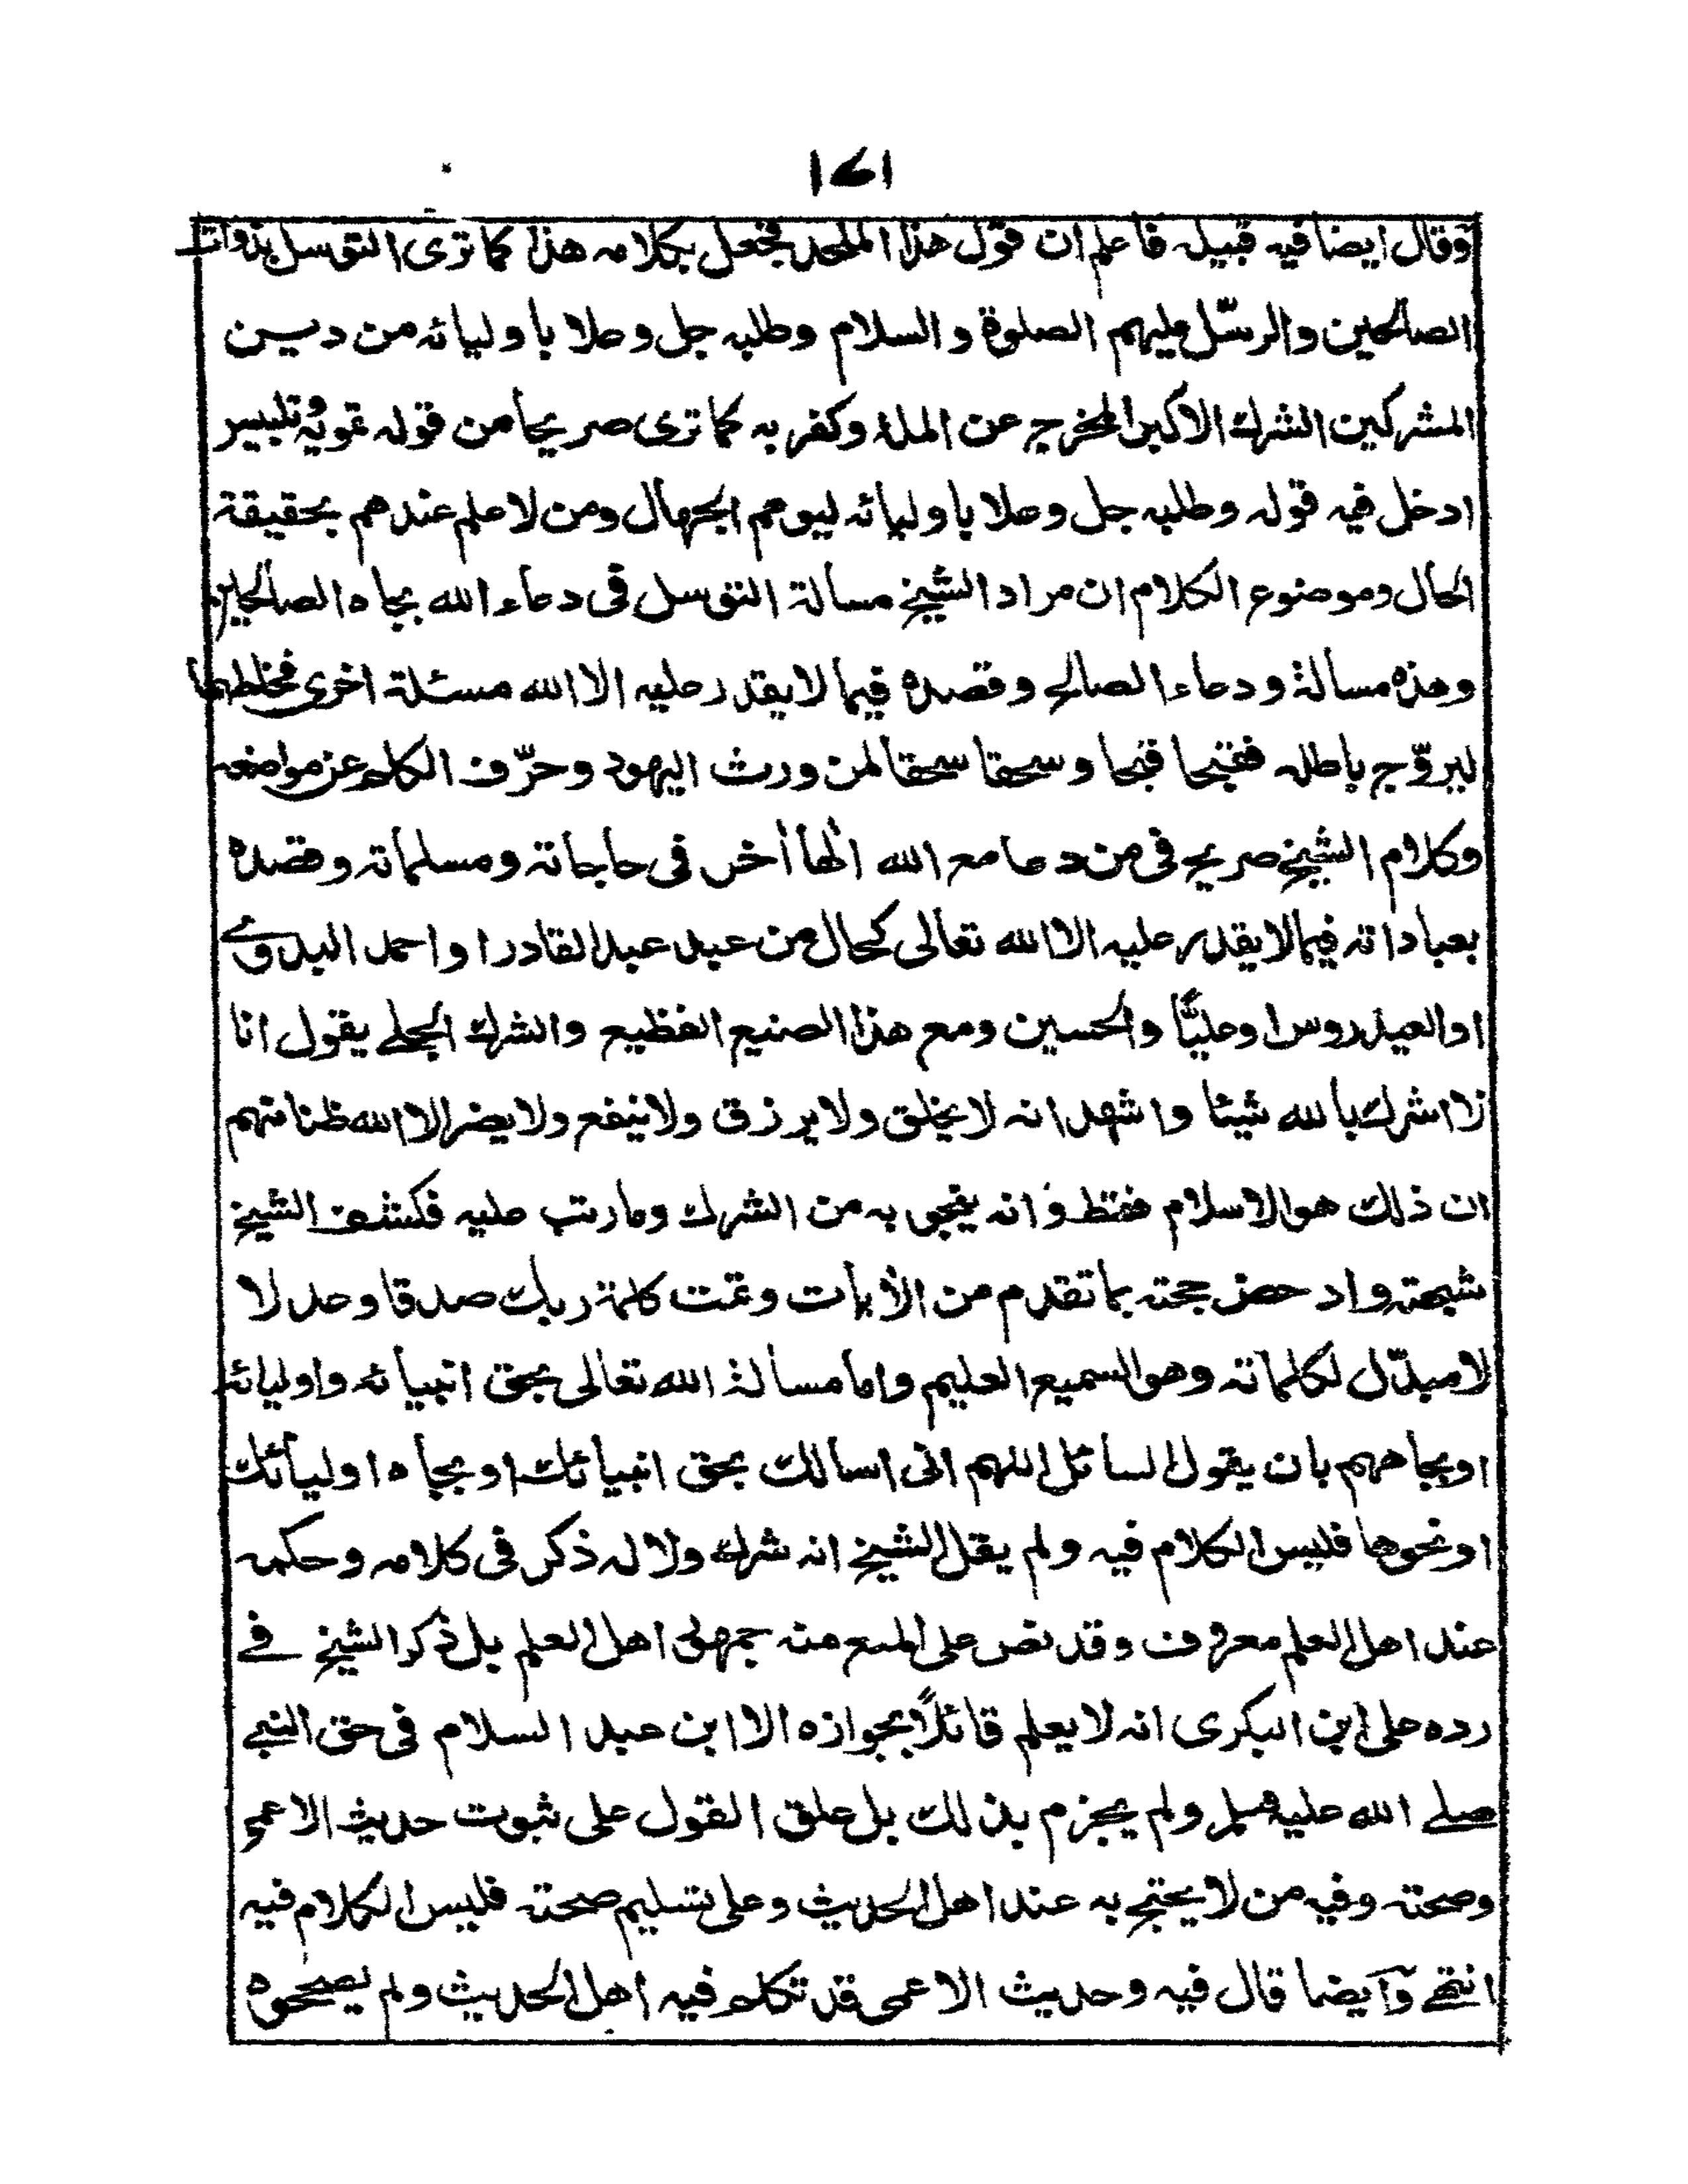 ١٤١
وقال ايضا فيه قبيله فاعلم ان قول هذا الملحد فجعل بكلامه هذا كما ترى التوسل بذوات
الصالحين والرسل عليهم الصلوة والسلام وطلبه جل وعلا باوليائه من دين
المشركين الشرك الاكبر المخرج عن الملة وكفر به كما ترى صريحا من قوله تمويه وتلبيس
ادخل فيه قوله وطلبه جل وعلا باوليائه ليوهم الجهال ومن لا علم عندهم بحقيقة
الحال وموضوع الكلام ان مراد الشيخ مسألة التوسل فى دعاء الله بجاه الصالحين
وهذه مسألة ودعاء الصالح وقصده فيما لا يقدر عليه الا الله مسئلة اخرى فخلطهما
ليروّج باطله فقبحا قبحا وسحقا سحقا لمن ورث اليهود وحرّف الكلم عن مواضعه
وكلام الشيخ صريح فى من دعا مع الله الٰها أخر فى حاجاته ومسلماته وقصده
بعباداته فيما لا يقدر عليه الا الله تعالى كحال من عبد عبد القادر او احمد البدوے
او العيدروس او عليًّا والحسين ومع هذا الصنيع الفظيع والشرك الجلے يقول انا
لا اشرك بالله شيئا واشهد انه لا يخلق ولا يرزق ولا ينفع ولا يضر الا الله ظنا منهم
ان ذلك هو الاسلام فقط وانه ينجى به من الشرك وما رتب عليه فكشف الشيخ
شبهته وادحض حجته بما تقدم من الأيات وتمت كلمة ربك صدقا وعدلا لا
لا مبدّل لكلماته وهو السميع العليم واما مسألة الله تعالى بحق انبيائه واوليائه
او بجاههم بان يقول السائل اللهم انى اسالك بحق انبيائك او بجاه اوليائك
او نحوها فليس الكلام فيه ولم يقل الشيخ انه شرك ولا له ذكر فى كلامه وحكمه
عند اهل العلم معروف وقد نص على المنع منه جمهور اهل العلم بل ذكر الشيخ فے
رده على ابن البكرى انه لا يعلم قائلًا بجوازه الا ابن عبد السلام فى حق النبے
صلے الله عليه وسلم ولم يجزم بذلك بل علق القول على ثبوت حديث الاعمى
وصحته وفيه من لا يحتج به عند اهل الحديث وعلى تسليم صحته فليس الكلام فيه
انتهے وأيضا قال فيه وحديث الاعمى قد تكلم فيه اهل الحديث ولم يصححوه